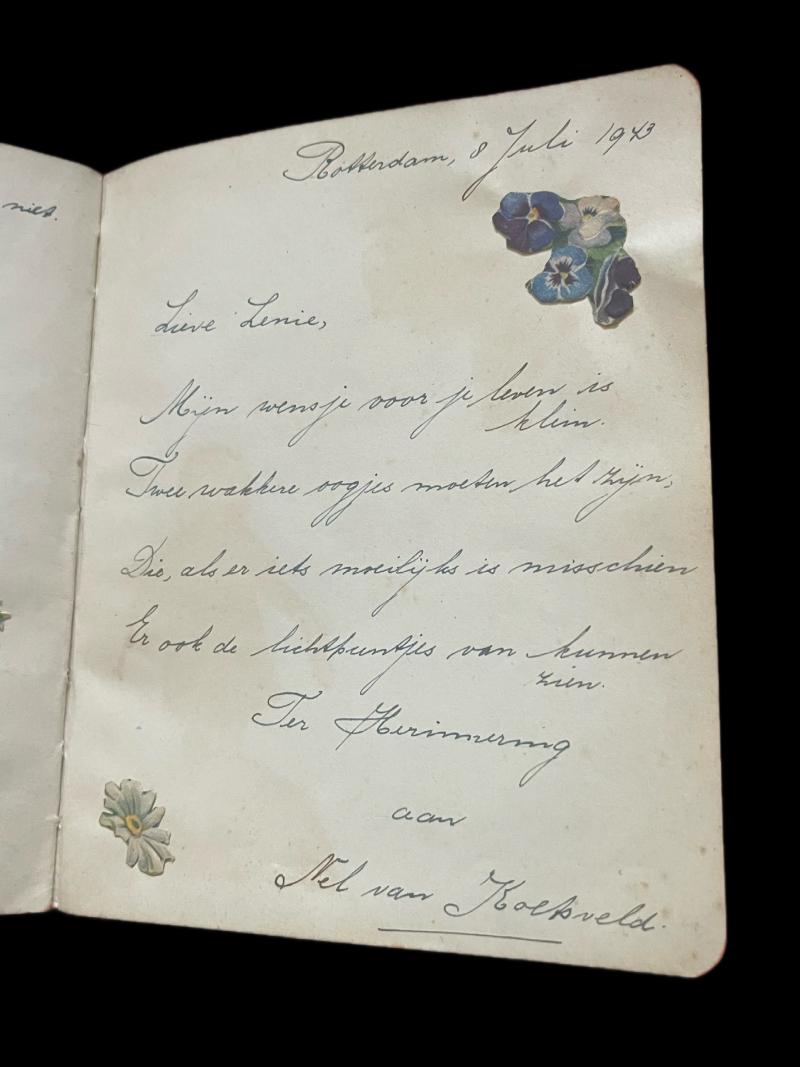 niet.
Rotterdam, 8 Juli 1943
Lieve Lenie,
Mijn wensje voor je leven is
klein.
Twee wakkere oogjes moeten het zijn,
Die, als er iets moeilijks is misschien
Er ook de lichtpuntjes van kunnen
zien.
Ter Herinnering
aan
Nel van Koetsveld.